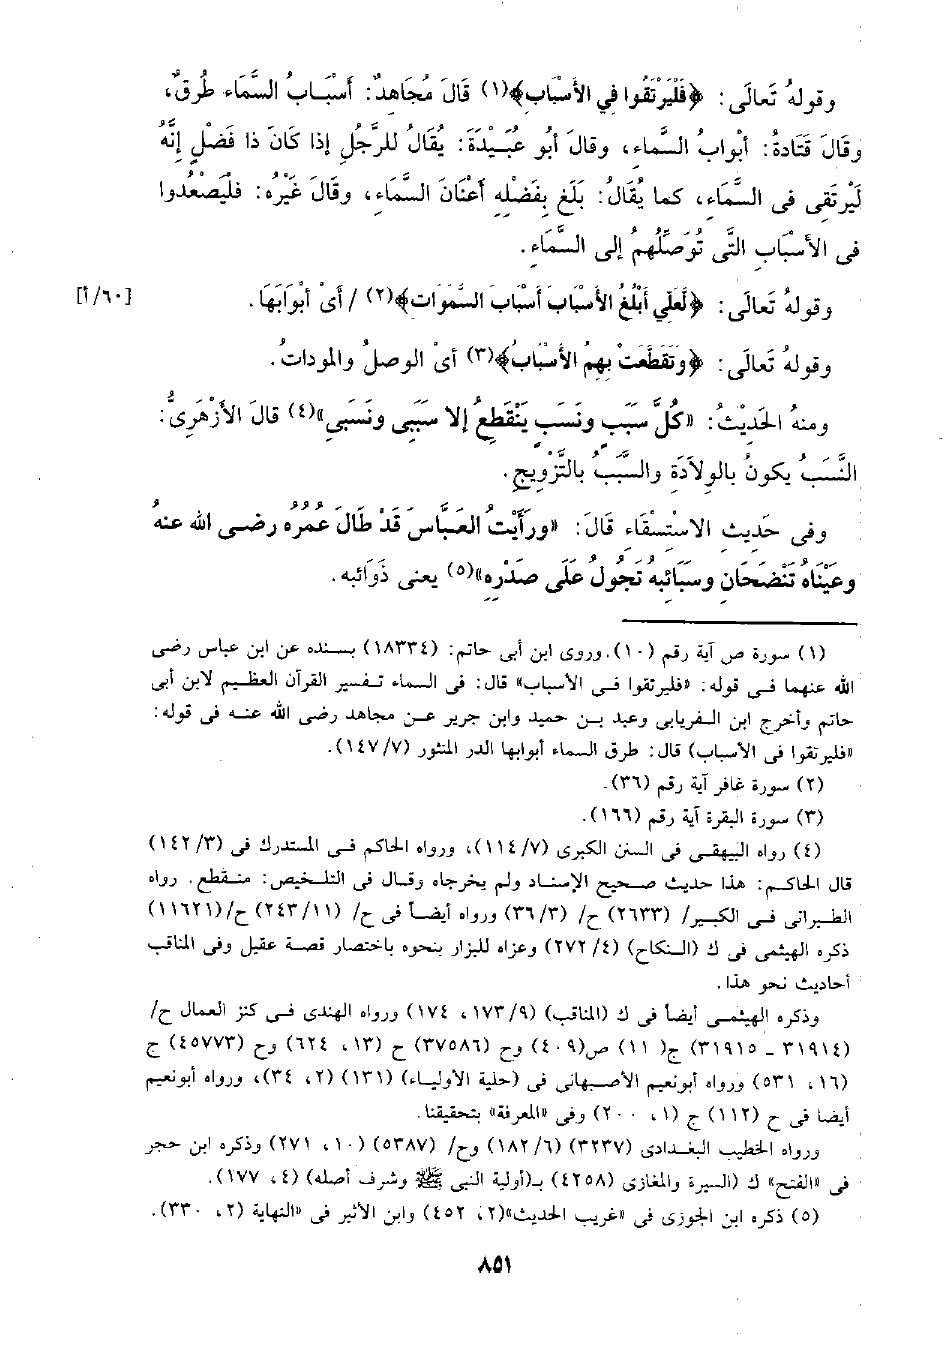 وقولهُ تَعالَى: ﴿فَلْيَرْتَقُوا فِي الأَسْبَابِ﴾(١) قَالَ مُجَاهِدٌ: أسْبَـابُ السَّمَاء طُرقٌ،
وقَالَ قَتَادةُ: أبْوابُ السَّماءِ، وقالَ أبُو عُبَيْدَةَ: يُقَالُ للرَّجُلِ إذا كَانَ ذا فَضْلٍ إنَّهُ
لَيْرتَقى فى السَّمَاءِ، كما يُقَالُ: بَلَغ بِفَضْلِه أعْنَانَ السَّماءِ، وقَالَ غَيْرُه: فلْيَصْعُدوا
فى الأسْبَابِ التَّى تُوَصِّلُهمُ إلى السَّمَاءِ.
وقولهُ تَعَالَى: ﴿لَعَلِّي أَبْلُغُ الأَسْبَابَ أَسْبَابَ السَّمَوَاتِ﴾(٢) / أَىْ أبْوَابَهَا. [٦٠/أ]
وقولهُ تَعالَى: ﴿وَتَقَطَّعَتْ بِهِمُ الأَسْبَابُ﴾(٣) أىْ الوصلُ والمودَاتُ.
ومنهُ الحَديْثُ: «كُلَّ سَبَبٍ ونَسَبٍ يَنْقَطِعُ إلا سَبَبى ونَسَبى»(٤) قالَ الأزْهَرىُّ:
النَّسَبُ يكونُ بالوِلاَدَةِ والسَّبَبُ بالتَّزْويجِ.
وفى حَديثِ الاسْتِسْقاءِ قَالَ: «ورَأَيْتُ العَبَّاسَ قَدْ طَالَ عُمُرُه رضـى الله عنهُ
وعَيْنَاهُ تَنْضَحَانِ وسَبَائبهُ تَجُولُ عَلَى صَدْرِه»(٥) يعنى ذَوَائبه.
(١) سورة ص آية رقم (١٠). وروى ابن أبى حاتم: (١٨٣٣٤) بسنده عن ابن عباس رضى
الله عنهما فـى قوله: «فليرتقوا فـى الأسباب» قال: فى السماء تـفسير القرآن العظيم لابن أبى
حاتم وأخرج ابن الـفريابى وعبد بـن حميد وابن جرير عـن مجاهد رضى الله عنـه فى قوله:
«فليرتقوا فى الأسباب) قال: طرق السماء أبوابها الدر المنثور (١٤٧/٧).
(٢) سورة غافر آية رقم (٣٦).
(٣) سورة البقرة آية رقم (١٦٦).
(٤) رواه البيهقـى فى السنن الكبرى (١١٤/٧)، ورواه الحاكم فـى المستدرك فى (١٤٢/٣)
قال الحاكـم: هذا حديث صـحيح الإسنـاد ولم يخرجاه وقـال فى التلـخيص: منـقطع. رواه
الطبرانى فـى الكبير/ (٢٦٣٣) ح/ (٣٦/٣) ورواه أيضـاً فى ح/ (٢٤٣/١١) ح/(١١٦٢١)
ذكره الهيثمى فى ك (النـكاح) (٢٧٢/٤) وعزاه للبزار بنحوه باختصار قصـة عقيل وفى المناقب
أحاديث نحو هذا.
وذكره الهيثمـى أيضاً فى ك (المناقب) (١٧٣/٩، ١٧٤) ورواه الهندى فـى كنز العمال ح/
(٣١٩١٤ ـ ٣١٩١٥) ج( ١١) ص(٤٠٩) وح (٣٧٥٨٦) ح (١٣، ٦٢٤) وح (٤٥٧٧٣) ج
(١٦، ٥٣١) ورواه أبونعيم الأصـبهانى فى (حلية الأوليـاء) (١٣١) (٢، ٣٤)، ورواه أبونعيم
أيضا فى ح (١١٢) ج (١، ٢٠٠) وفى «المعرفة» بتحقيقنا.
ورواه الخطيب البغـدادى (٣٢٣٧) (١٨٢/٦) وح/ (٥٣٨٧) (١٠، ٢٧١) وذكره ابن حجر
فى «الفتح» ك (السيرة والمغازى (٤٢٥٨) بـ(أولية النبى ﷺ وشرف أصله) (٤، ١٧٧).
(٥) ذكره ابن الجوزى فى «غريب الحديث»(٢، ٤٥٢) وابن الأثير فى «النهاية (٢، ٣٣٠).
٨٥١